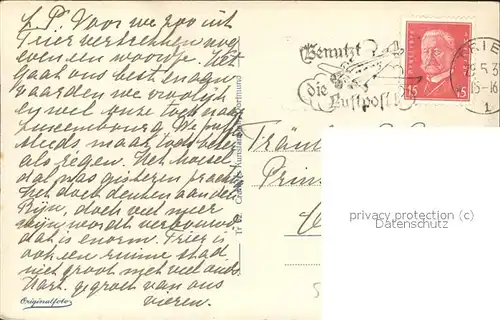 L.P. Voor we zoo uit
Trier vertrekken nog
even een woordje. Het
gaat ons best en aan
vaarden we vroolijk
en wel onze tocht naar
Luxembourg. We puffen
steeds, maar toch beter
als regen. Het Mosel
dal was gisteren prachtig
Het doet denken aan den
Rijn, doch veel meer
wijn wordt verbouwd
dat is enorm. Trier is
ook een ruime stad
niet groot met veel ouds
Hart. gegroet van ons
vieren.
Originalfoto
Tr 62. Cramers Kunstanstalt, Dortmund
Benutzt
die
Luftpost
TRIE
5.3
18-16
1
15
15
Fräulein
Prin
privacy protection (c)
Datenschutz